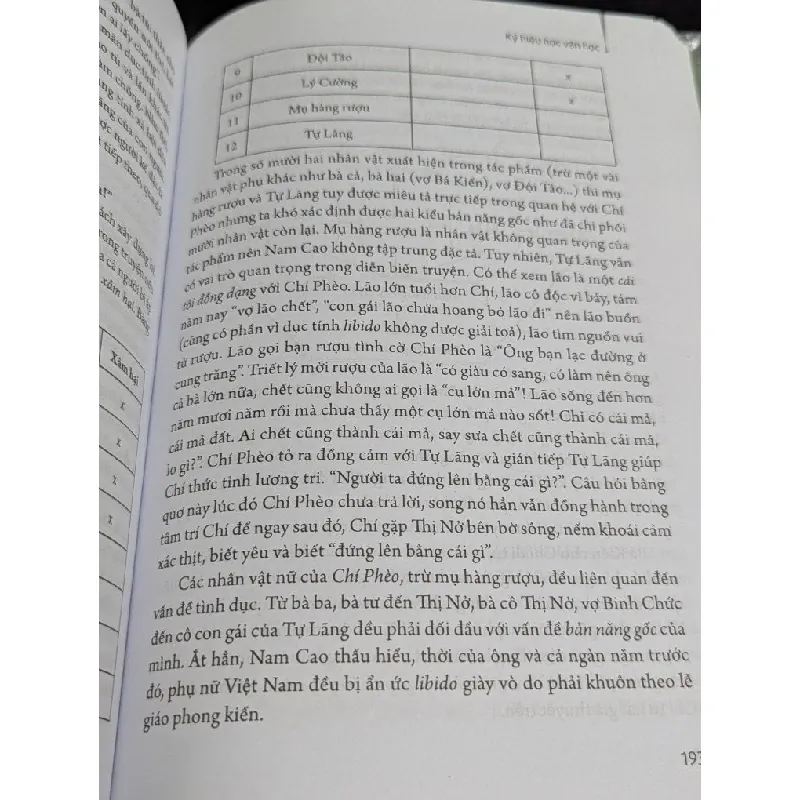 Ký hiệu học văn học
9 Đội Tảo
10 Lý Cường x
11 Mụ hàng rượu x
12 Tự Lãng
Trong số mười hai nhân vật xuất hiện trong tác phẩm (trừ một vài
nhân vật phụ khác như bà cả, bà hai (vợ Bá Kiến), vợ Đội Tảo...) thì mụ
hàng rượu và Tự Lãng tuy được miêu tả trực tiếp trong quan hệ với Chí
Phèo nhưng ta khó xác định được hai kiểu bản năng gốc như đã chi phối
mười nhân vật còn lại. Mụ hàng rượu là nhân vật không quan trọng của
tác phẩm nên Nam Cao không tập trung đặc tả. Tuy nhiên, Tự Lãng vẫn
có vai trò quan trọng trong diễn biến truyện. Có thể xem lão là một cái
tôi đồng dạng với Chí Phèo. Lão lớn tuổi hơn Chí, lão cô độc vì bảy, tám
năm nay “vợ lão chết”, “con gái lão chửa hoang bỏ lão đi” nên lão buồn
(cũng có phần vì dục tính libido không được giải toả), lão tìm nguồn vui
từ rượu. Lão gọi bạn rượu tình cờ Chí Phèo là “Ông bạn lạc đường ở
cung trăng”. Triết lý mời rượu của lão là “có giàu có sang, có làm nên ông
cả bà lớn nữa, chết cũng không ai gọi là “cụ lớn mả”! Lão sống đến hơn
năm mươi năm rồi mà chưa thấy một cụ lớn mả nào sốt! Chỉ có cái mả,
cái mả đất. Ai chết cũng thành cái mả, say sưa chết cũng thành cái mả,
lo gì?”. Chí Phèo tỏ ra đồng cảm với Tự Lãng và gián tiếp Tự Lãng giúp
Chí thức tỉnh lương tri. “Người ta đứng lên bằng cái gì?”. Câu hỏi bâng
quơ này lúc đó Chí Phèo chưa trả lời, song nó hẳn vẫn đồng hành trong
tâm trí Chí để ngay sau đó, Chí gặp Thị Nở bên bờ sông, nếm khoái cảm
xác thịt, biết yêu và biết “đứng lên bằng cái gì”.
Các nhân vật nữ của Chí Phèo, trừ mụ hàng rượu, đều liên quan đến
vấn đề tình dục. Từ bà ba, bà tư đến Thị Nở, bà cô Thị Nở, vợ Binh Chức
đến cô con gái của Tự Lãng đều phải đối đầu với vấn đề bản năng gốc của
mình. Ắt hẳn, Nam Cao thấu hiểu, thời của ông và cả ngàn năm trước
đó, phụ nữ Việt Nam đều bị ẩn ức libido giày vò do phải khuôn theo lễ
giáo phong kiến.
193
Xâm hại
x
x
x
x